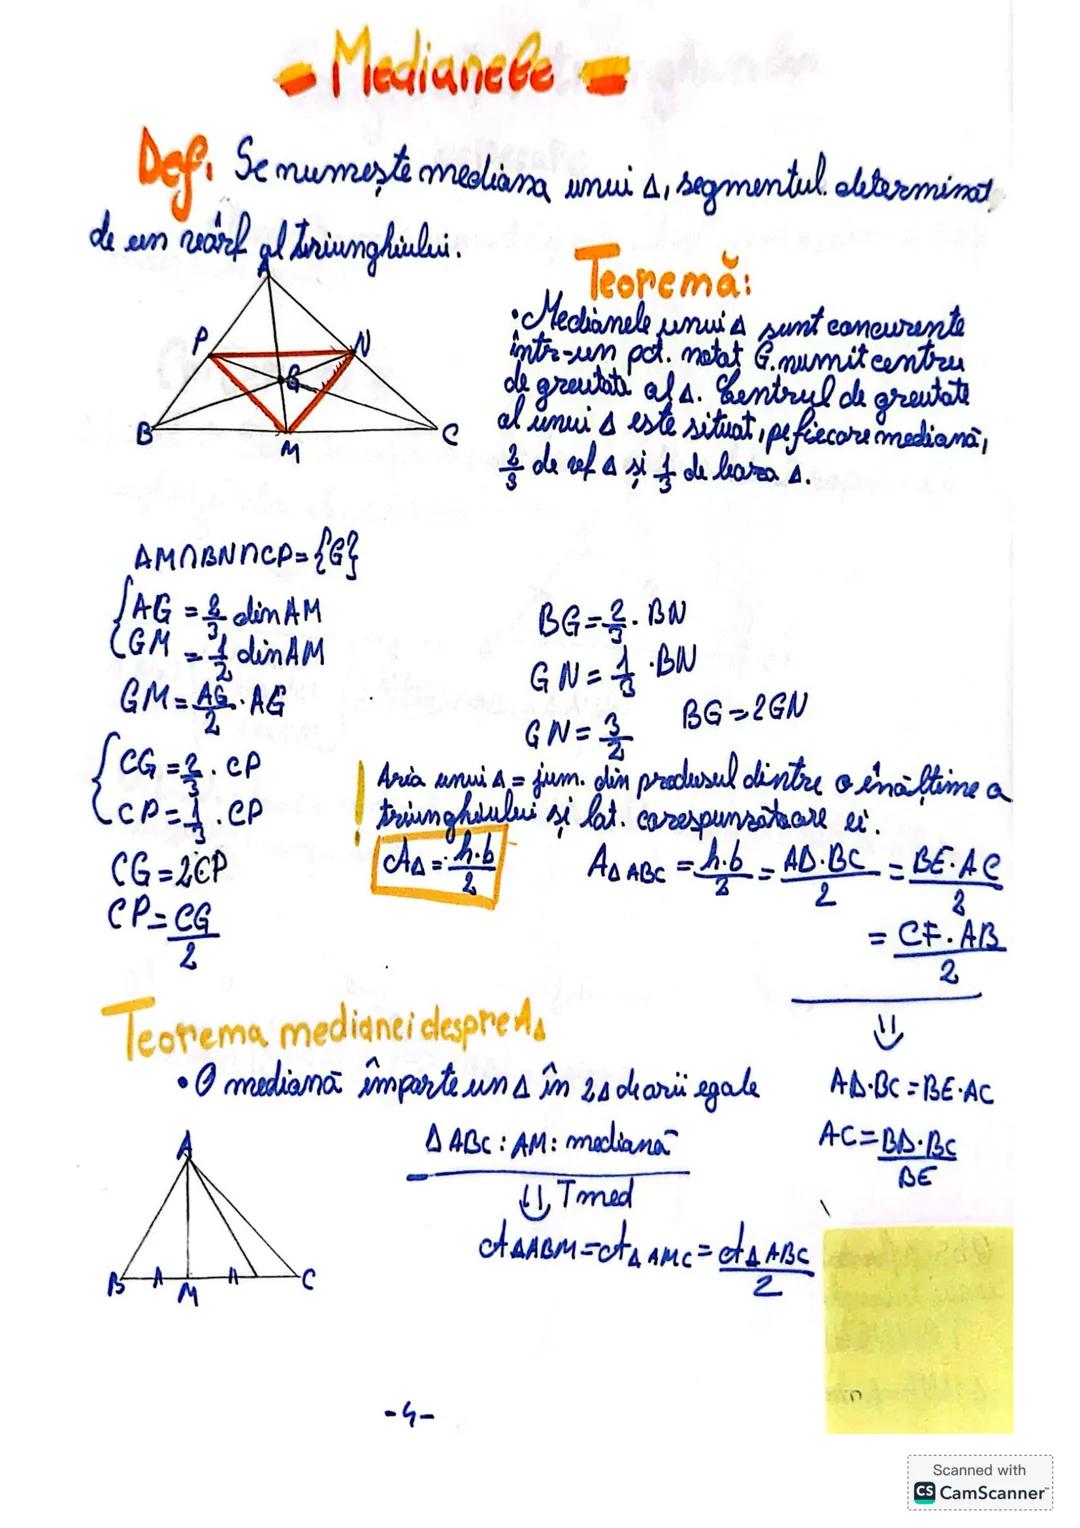 - Medianele -
Def: Se numește mediana unui Δ, segmentul determinat
de un vârf al triunghiului.
A
P
N
G
B
M
C
Teoremă:
• Medianele unui Δ sunt concurente
într-un pct. notat G.numit centru
de greutate al Δ. Centrul de greutate
al unui Δ este situat, pe fiecare mediană,
2/3 de vf Δ și 1/3 de baza Δ.
AM∩BN∩CP={G}
AG = 2/3 din AM
GM = 1/2 din AM
GM = AG/2 · AG
CG = 2/3 · CP
CP = 1/3 · CP
CG = 2CP
CP = CG/2
BG = 2/3 · BN
GN = 1/3 · BN
GN = 3/2
BG = 2GN
! Aria unui Δ = jum. din produsul dintre o înălțime a
triunghiului și lat. corespunzătoare ei.
AΔ = h·b/2
AΔABC = h·b/2 = AD·BC/2 = BE·AC/2
= CF·AB/2
⇓
AD·BC = BE·AC
AC = BD·BC/BE
Teorema medianei despre AΔ
• O mediană împarte un Δ în 2Δ de arii egale
ΔABC : AM: mediană
⇓ Tmed
AΔABM = AΔAMC = AΔABC/2
A
B
M
C
-4-
Scanned with
CS CamScanner